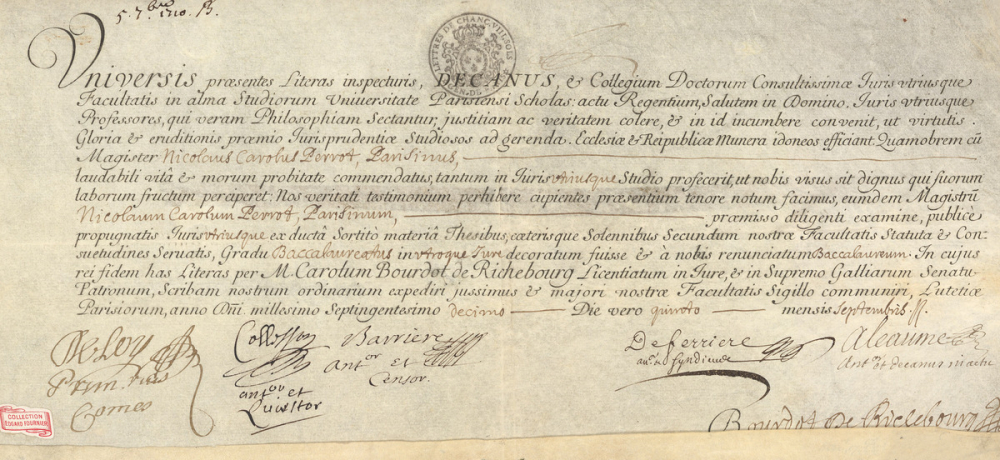 5. 7.bre 1710. B.
LETTRES DE CHANC. VIII. SOLS
Vniversis præsentes Literas inspecturis, DECANUS, & Collegium Doctorum Consultissimæ Iuris vtriusque
Facultatis in alma Studiorum Vniuersitate Parisiensi Scholas actu Regentium, Salutem in Domino. Iuris vtriusque
Professores, qui veram Philosophiam Sectantur, justitiam ac veritatem colere, & in id incumbere convenit, ut virtutis
Gloria & eruditionis præmio Iurisprudentiæ Studiosos ad gerenda Ecclesiæ & Reipublicæ Munera idoneos efficiant. Quamobrem cũ
Magister Nicolaus Carolus Perrot, Parisinus,
laudabili vitâ & morum probitate commendatus, tantum in Iuris vtriusque Studio profecerit, ut nobis visus sit dignus qui suorum
laborum fructum perciperet: Nos veritati testimonium perhibere cupientes præsentium tenore notum facimus, eumdem Magistrũ
Nicolaum Carolum Perrot, Parisinum, præmisso diligenti examine, publicè
propugnatis Iuris vtriusque ex ductâ Sortitò materiâ Thesibus, cæterisque Solennibus Secundum nostræ Facultatis Statuta & Con-
suetudines Seruatis, Gradu Baccalaureatus in vtroque Iure decoratum fuisse & à nobis renunciatum Baccalaureum. In cujus
rei fidem has Literas per M. Carolum Bourdot de Richebourg Licentiatum in Iure, & in Supremo Galliarum Senatu
Patronum, Scribam nostrum ordinarium expediri jussimus & majori nostræ Facultatis Sigillo communiri, Lutetiæ
Parisiorum, anno Dñi millesimo Septingentesimo decimo Die vero quinto mensis Septembris.
De Loy
Comes
Collesson
antor et
Quæstor
Barriere
antor et
Censor.
Deferriere
Syndicus
Aleaume
Ant or et decanus
Bourdot De Richebourg
COLLECTION
EDGARD FOURNIER